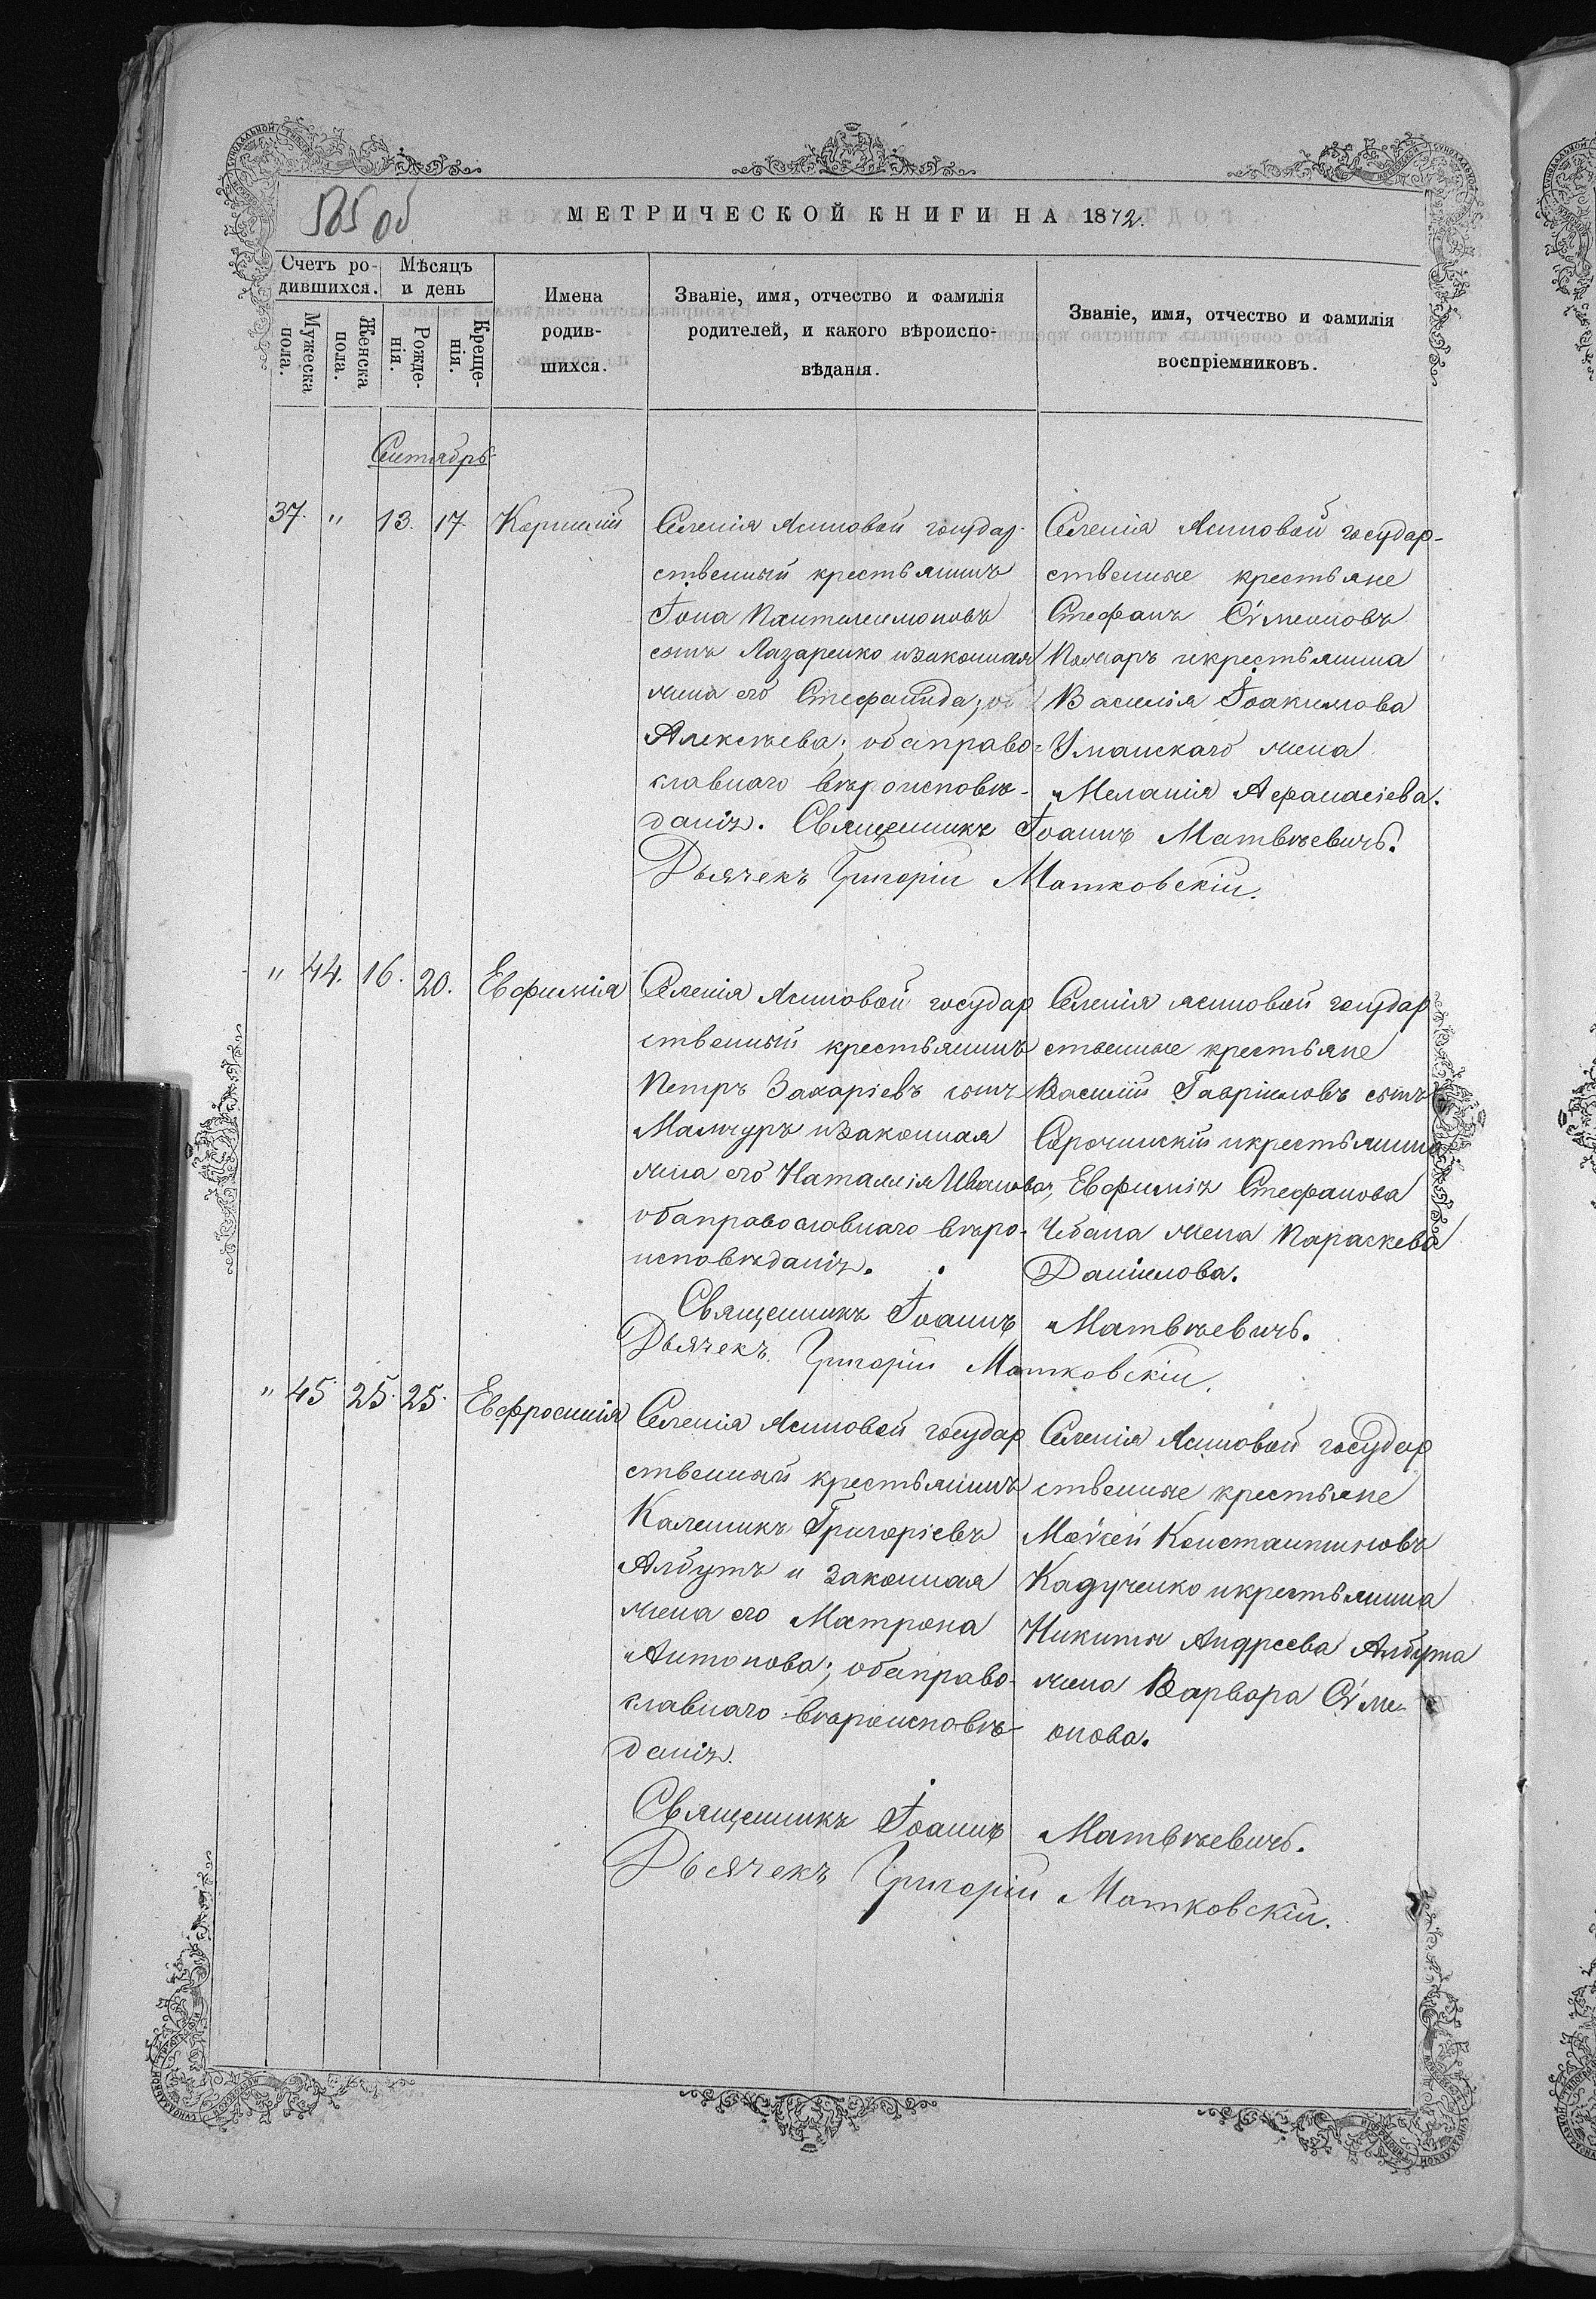 585 об
МЕТРИЧЕСКОЙ КНИГИ НА 1872.
Счетъ ро-
дившихся.
Мужеска
пола.
Женска
пола.
Мѣсяцъ
и день
Рожде-
нія.
Креще-
нія.
Имена
родив-
шихся.
Званіе, имя, отчество и фамилія
родителей, и какого вѣроиспо-
вѣданія.
Званіе, имя, отчество и фамилія
воспріемниковъ.
Сентябрь
37. " 13. 17. Корнилій
Селенія Ясиновой государ-
ственный крестьянинъ
Іона Пантелеимоновъ
сынъ Лазаренко изаконная
жена его Стефанида;
Алексѣева; обаправо-
славнаго вѣроисповѣ-
данія. Священникъ Іоаннъ Матвѣевичъ.
Дьячекъ Григорій Матковскій.
Селенія Ясиновой государ-
ственные крестьяне
Стефанъ Сѵмеоновъ
Поляръ икрестьянина
Василія Іоакимова
Уманскаго жена
Меланія Афанасіева.
" 44. 16. 20. Евфимія
Селенія Ясиновой государ
ственный крестьянинъ
Петръ Захаріевъ сынъ
Мамчуръ изаконная
жена его Наталлія Иванова,
обаправославнаго вѣро-
исповѣданія.
Священникъ Іоаннъ Матвѣевичъ.
Дьячекъ Григорій Матковскій.
Селенія ясиновой государ
ственные крестьяне
Василій Гавріиловъ сынъ
Сорочинскій икрестьянина
Евфимія Стефанова
Чебана жена Параскева
Даніилова.
" 45 25. 25. Евфросинія
Селенія Ясиновой государ
ственный крестьянинъ
Калениикъ Григоріевъ
Албутъ и законная
жена его Матрона
Антонова; обаправо-
славнаго вѣроисповѣ-
данія.
Селенія Ясиновой государ
ственные крестьяне
Моѵсей Константиновъ
Кадученко икрестьянина
Никиты Андреева Албута
жена Варвара Сѵме-
онова.
Священникъ Іоаннъ Матвѣевичъ.
Дьячекъ Григорій Матковскій.